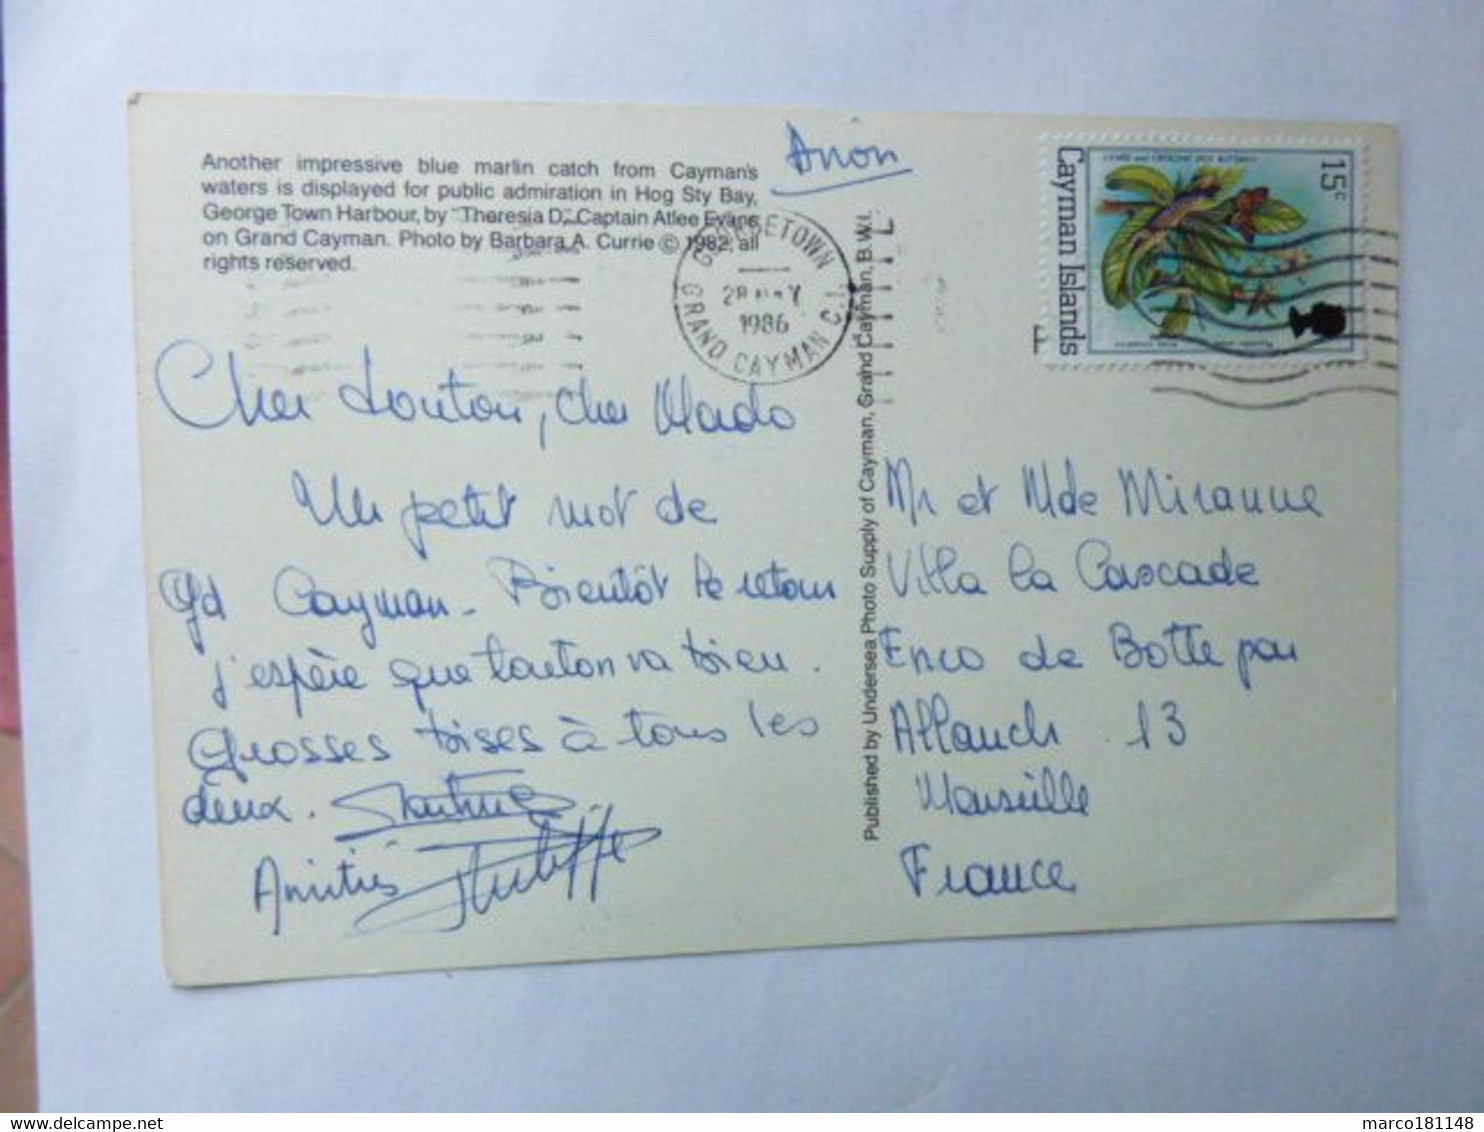 Another impressive blue marlin catch from Cayman's
waters is displayed for public admiration in Hog Sty Bay,
George Town Harbour, by "Theresia D", Captain Atlee Evans
on Grand Cayman. Photo by Barbara A. Currie © 1982, all
rights reserved.
Avion
GEORGETOWN
28 MAY
1986
GRAND CAYMAN C.I.
15c
Cayman Islands
Published by Undersea Photo Supply of Cayman, Grand Cayman, B.W.I.
Cher tonton, cher Mado
Un petit mot de
Gd Cayman - Bientôt le retour
j'espère que tonton va bien.
Grosses bises à tous les
deux. Martine
Amitiés
Mr et Mde Miranne
Villa la Cascade
Enco de Botte par
Allauch 13
Marseille
France
marco181148